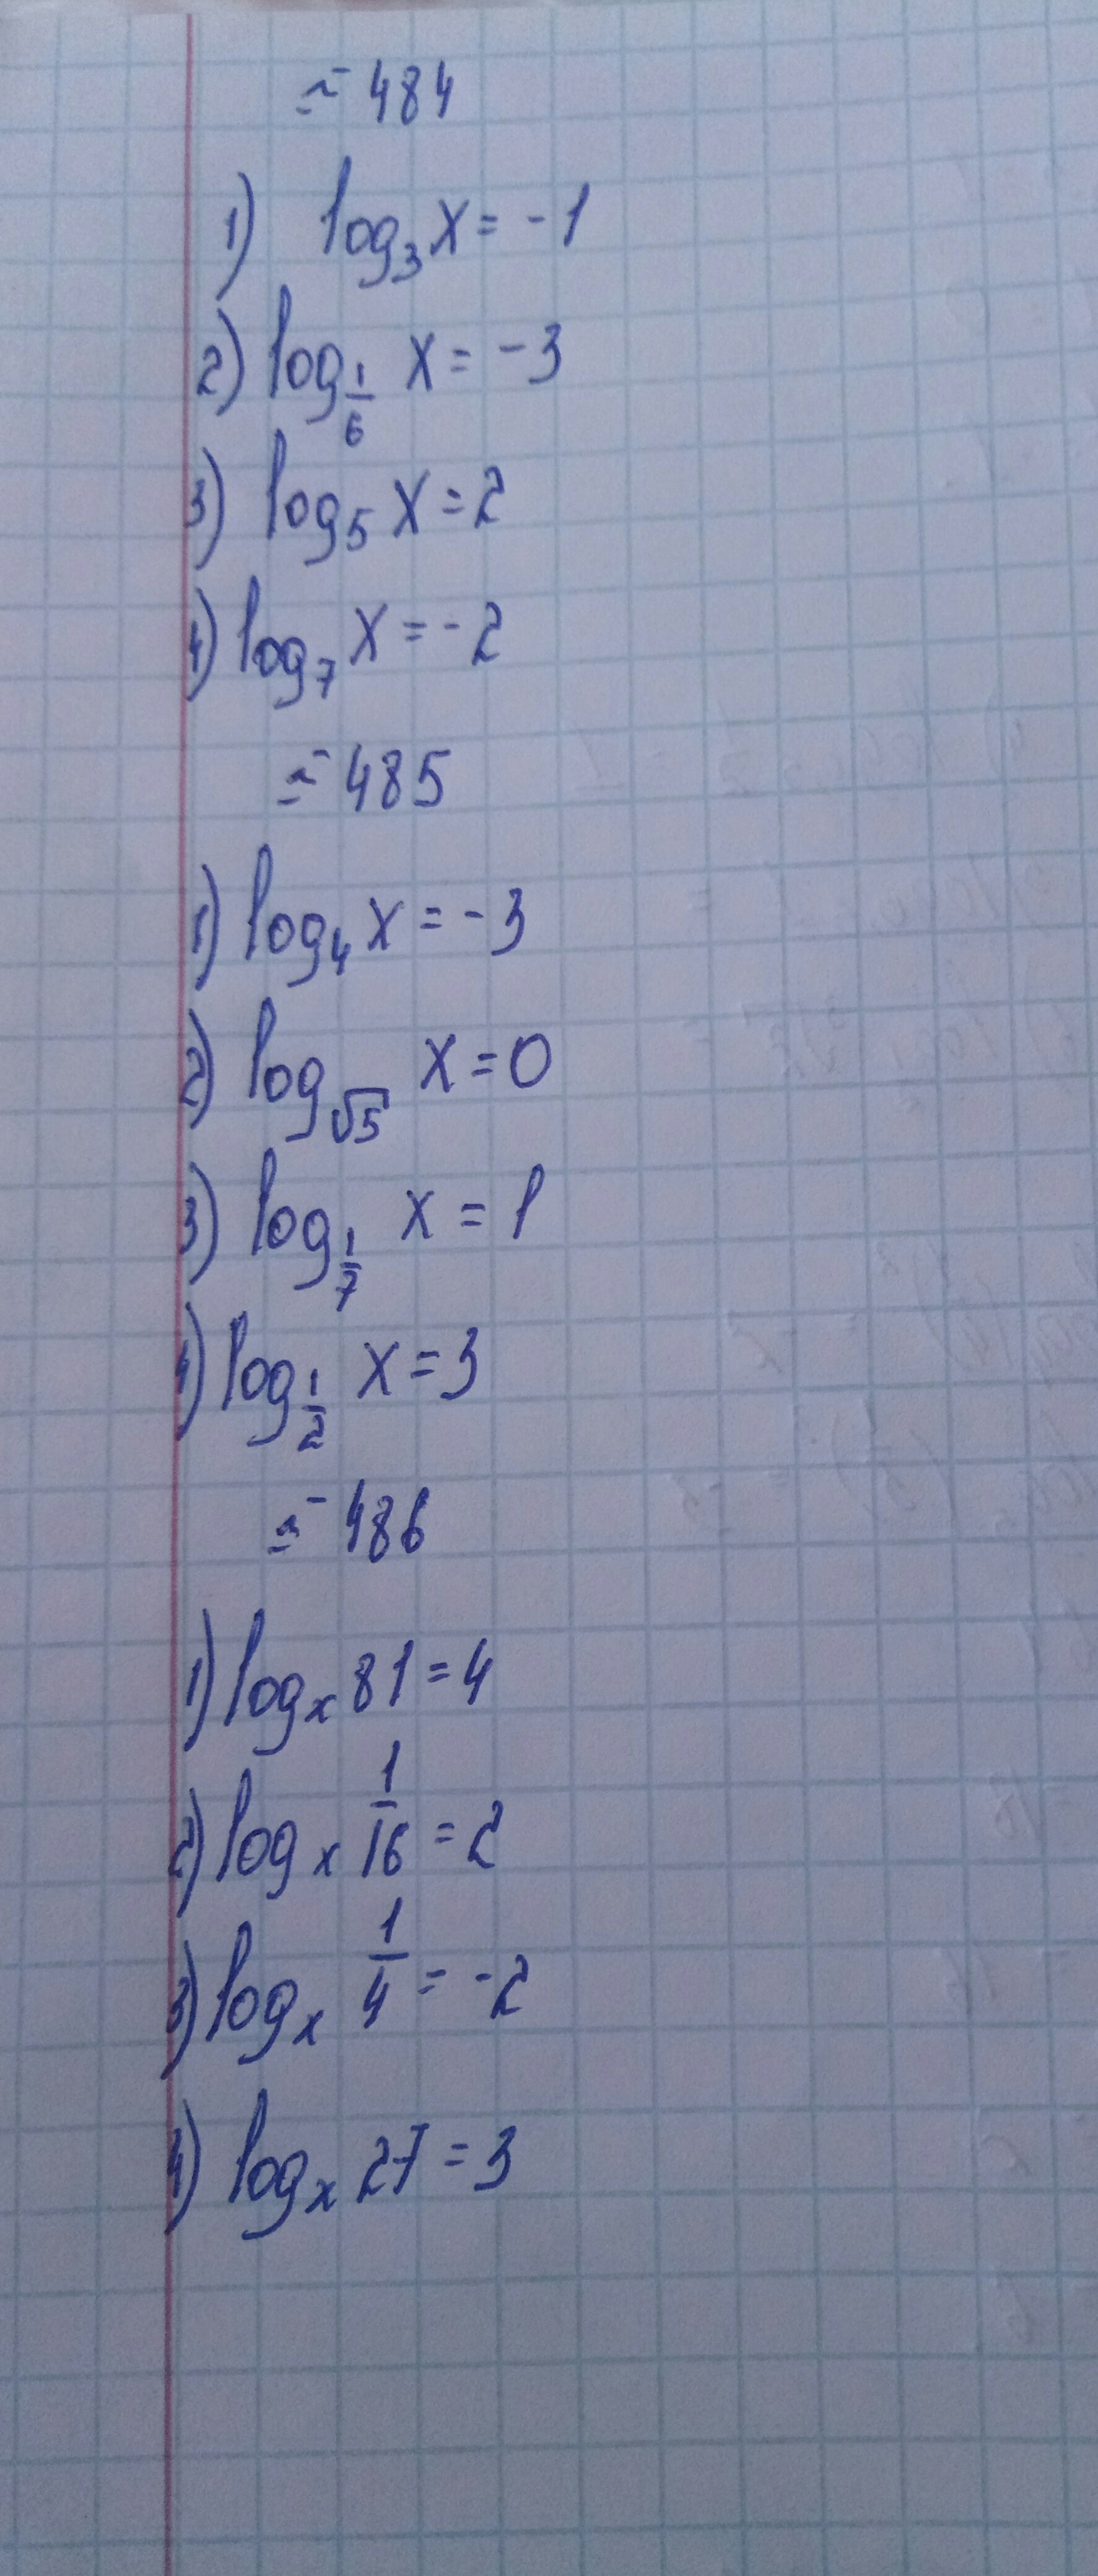 ≈ 484
1) log₃ x = -1
2) log_{1/6} x = -3
3) log₅ x = 2
4) log₇ x = -2
≈ 485
1) log₄ x = -3
2) log_{√5} x = 0
3) log_{1/7} x = 1
4) log_{1/2} x = 3
≈ 486
1) logₓ 81 = 4
2) logₓ 1/16 = 2
3) logₓ 1/4 = -2
4) logₓ 27 = 3